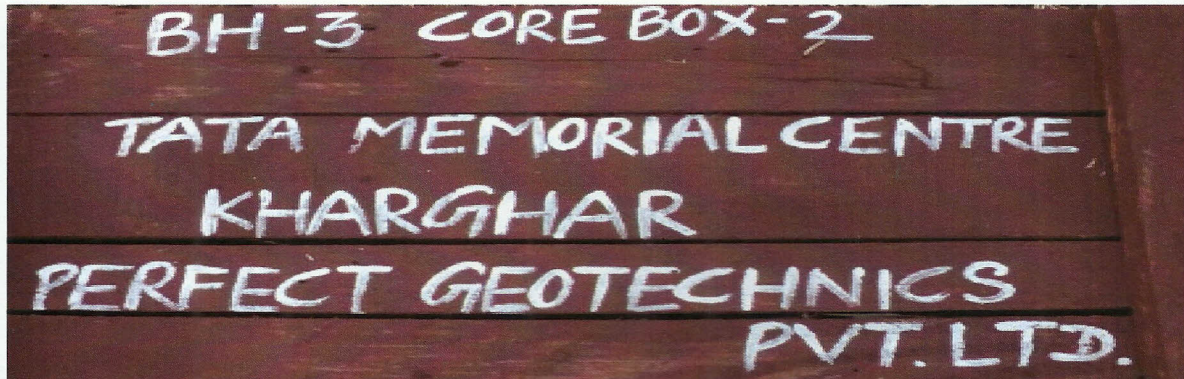 BH-3 CORE BOX-2
TATA MEMORIAL CENTRE
KHARGHAR
PERFECT GEOTECHNICS
PVT. LTD.